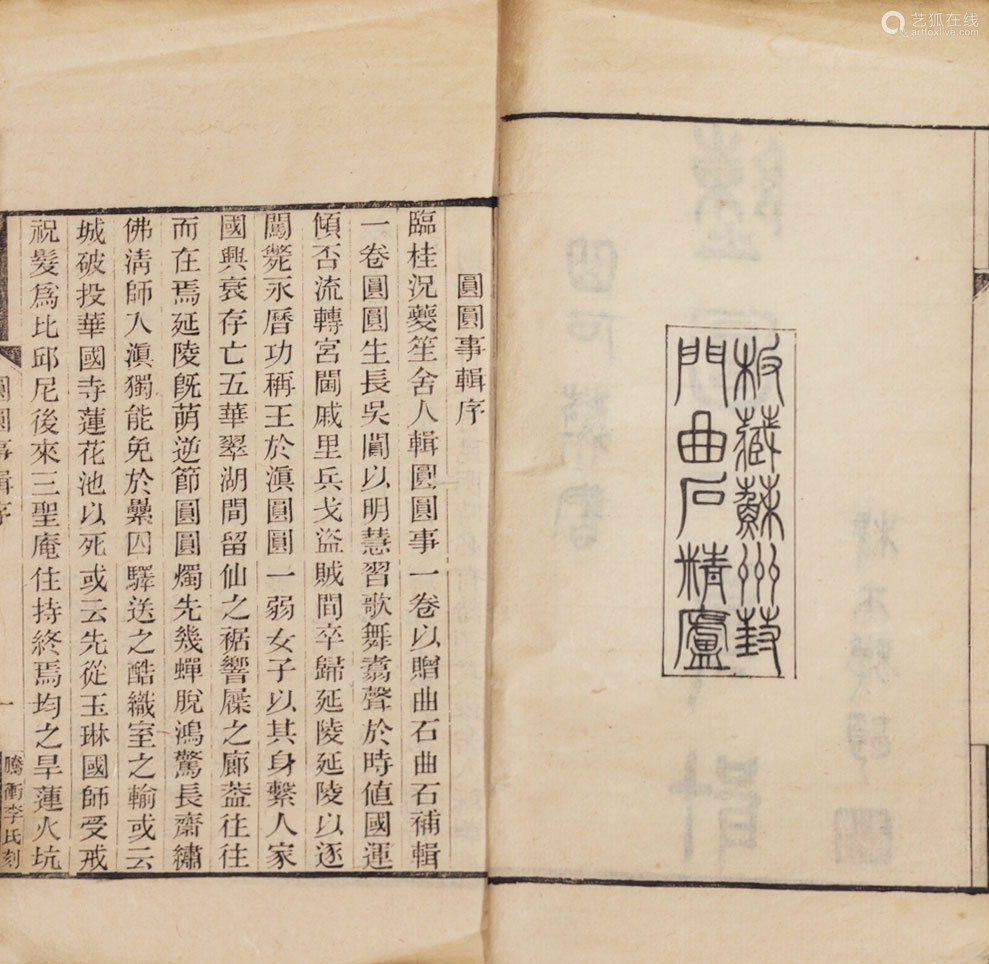 艺狐在线
artfoxlive.com
板藏蘇州葑
門曲石精廬
圓圓事輯序
臨桂況夔笙舍人輯圓圓事一卷以贈曲石曲石補輯
一卷圓圓生長吳閶以明慧習歌舞翥聲於時値國運
傾否流轉宮閫戚里兵戈盜賊間卒歸延陵延陵以逐
闖斃永曆功稱王於滇圓圓一弱女子以其身繫人家
國興衰存亡五華翠湖間留仙之裾響屧之廊葢往往
而在焉延陵旣萌逆節圓圓燭先幾蟬脫鴻驚長齋繡
佛淸師入滇獨能免於纍囚驛送之酷織室之輸或云
城破投華國寺蓮花池以死或云先從玉琳國師受戒
祝髮爲比邱尼後來三聖庵住持終焉均之旱蓮火坑
圓圓事輯序
一
騰衝李氏刻